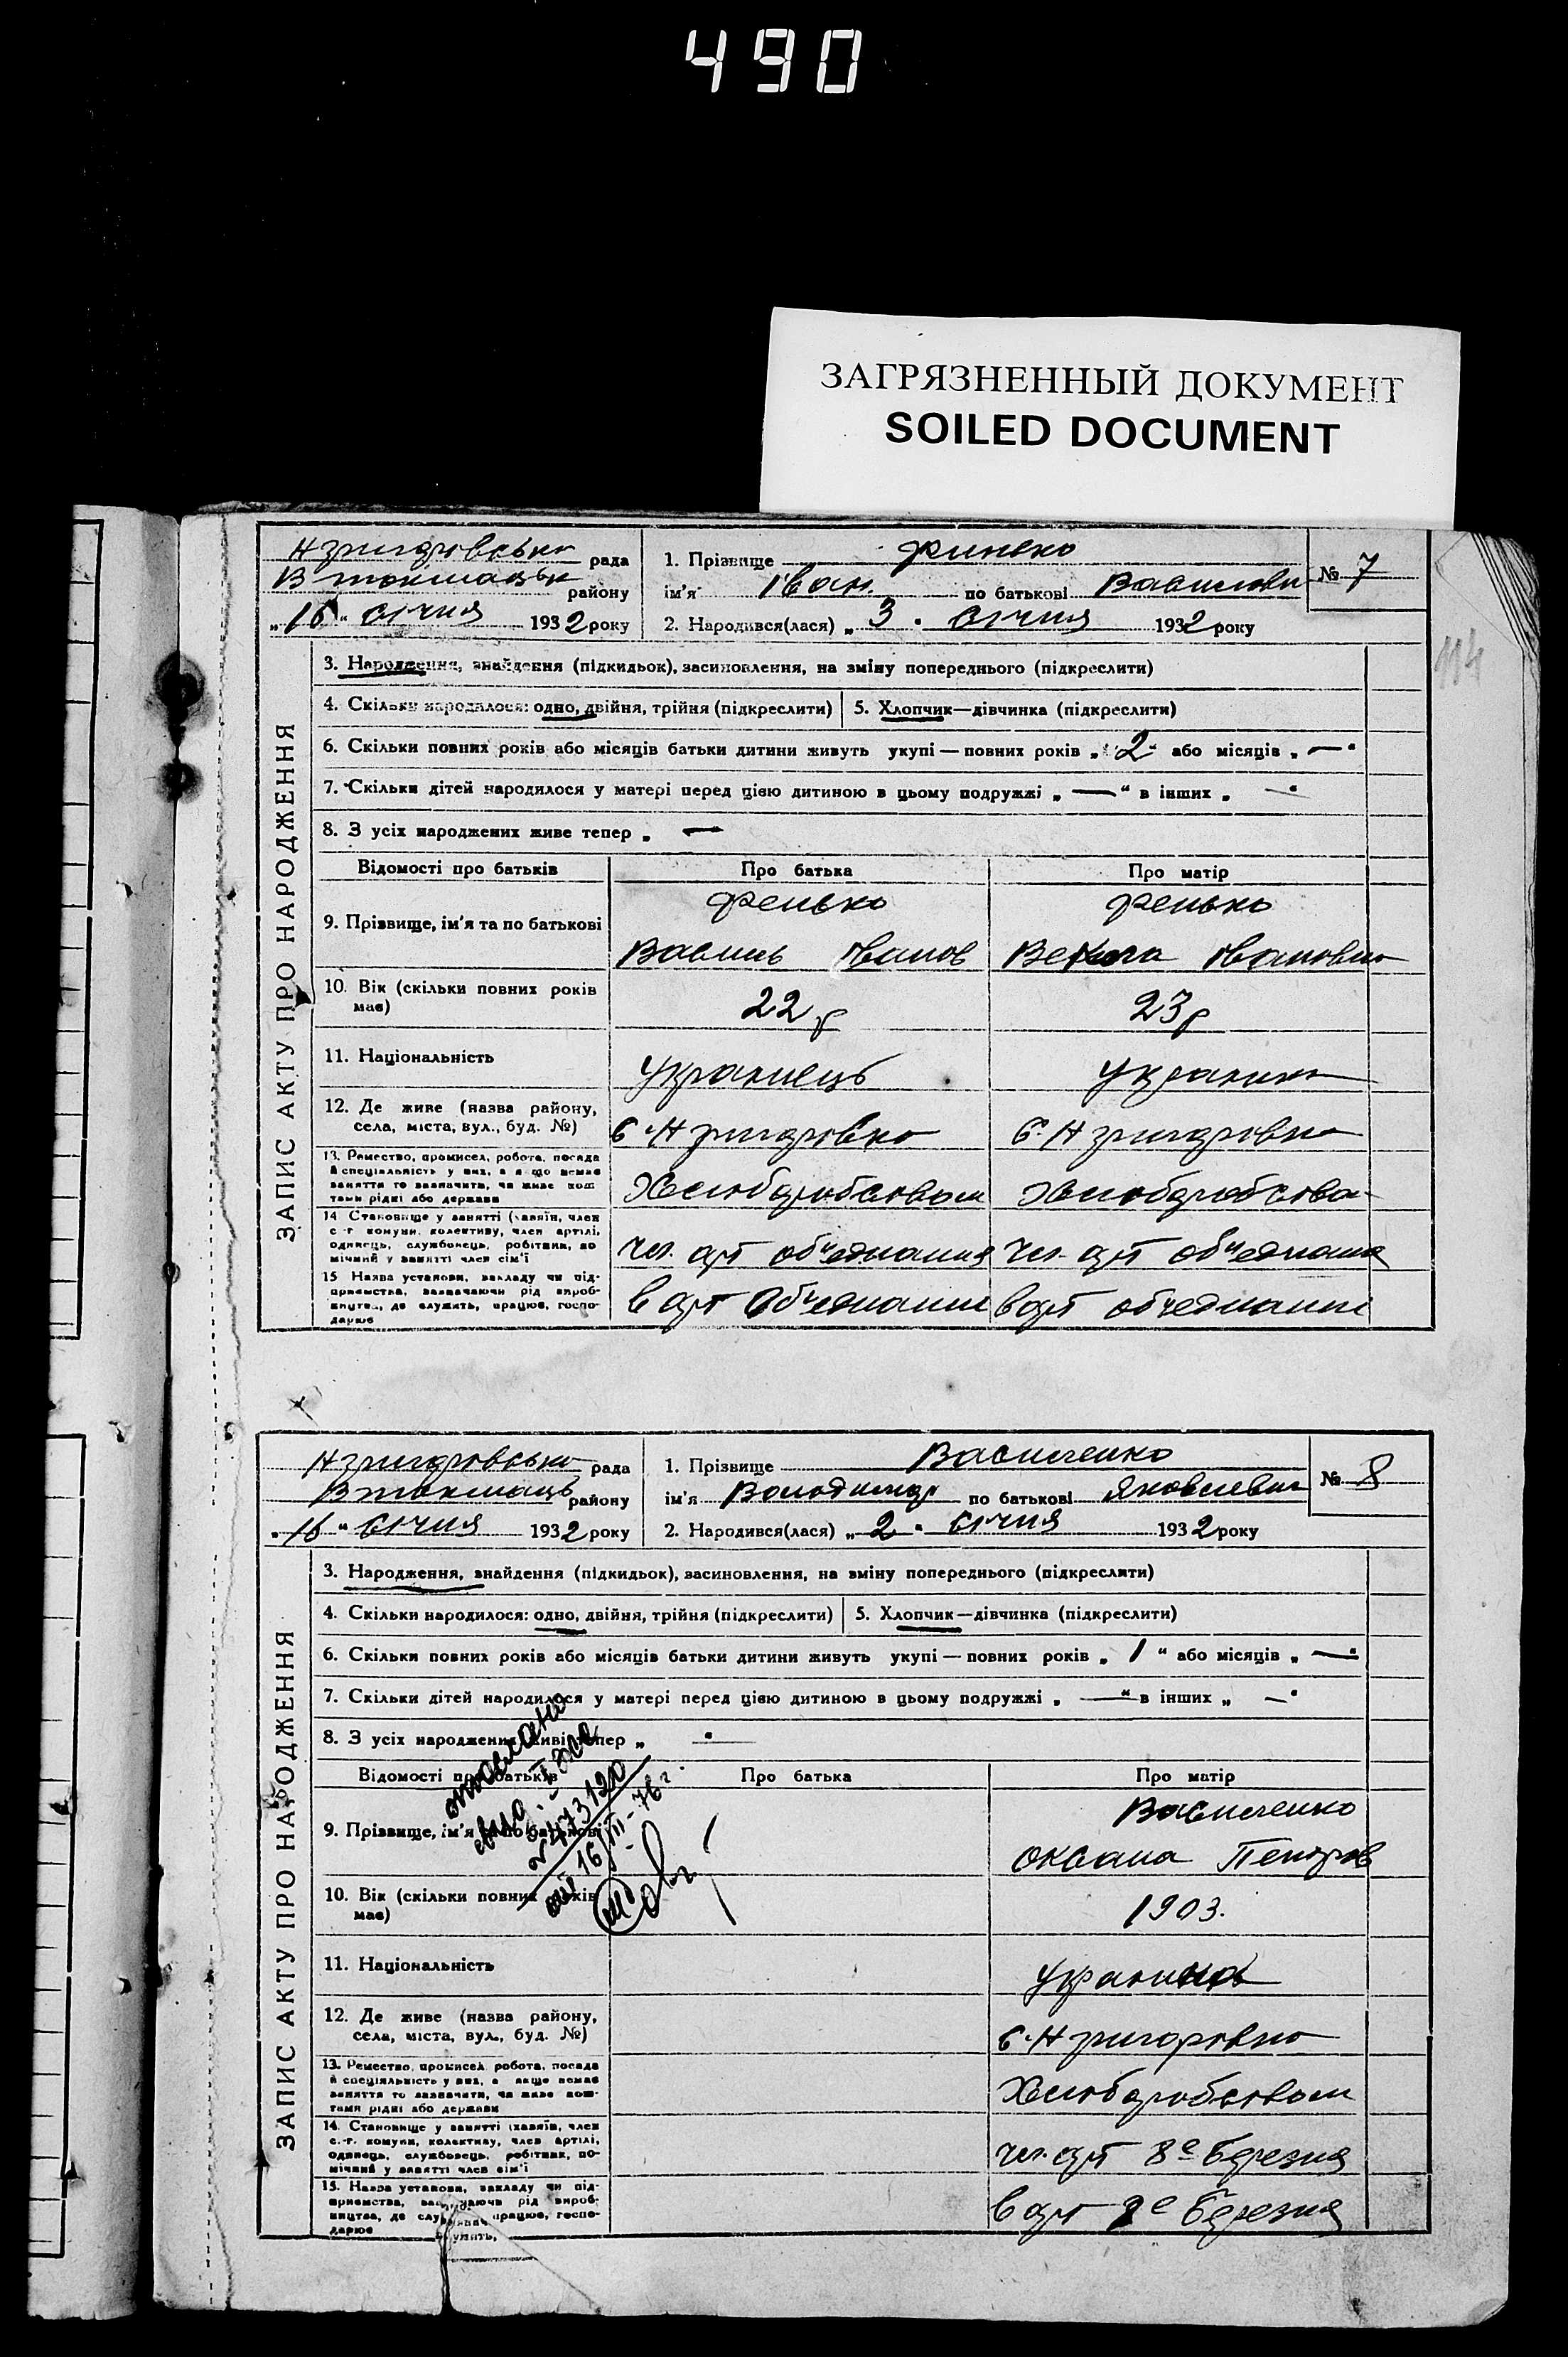 490
ЗАГРЯЗНЕННЫЙ ДОКУМЕНТ
SOILED DOCUMENT
114
ЗАПИС АКТУ ПРО НАРОДЖЕННЯ
рада
району
„16“ січня 1932 року
1. Прізвище
ім'я Іван. по батькові
№ 7
2. Народився(лася) „3“ січня 1932 року
3. Народження, знайдення (підкидьок), засиновлення, на зміну попереднього (підкреслити)
4. Скільки народилося: одно, двійня, трійня (підкреслити) 5. Хлопчик—дівчинка (підкреслити)
6. Скільки повних років або місяців батьки дитини живуть укупі — повних років „2“ або місяців „—“
7. Скільки дітей народилося у матері перед цією дитиною в цьому подружжі „—“ в інших „—“
8. З усіх народжених живе тепер „ —
Відомості про батьків Про батька Про матір
9. Прізвище, ім'я та по батькові
Фенько Фенько
Василь Іванов Івановна
10. Вік (скільки повних років має) 22 р 23 р
11. Національність Украинець Украинка
12. Де живе (назва району, села, міста, вул., буд. №) с. Н григоровка с. Н григоровка
13. Ремество, промисел, робота, посада
й спеціальність у них, а якщо немає
заняття то зазначити, чи живе кош-
тами рідні або держави
Хлиобдробством
14. Становище у занятті (хазяїн, член
с.-г. комуни, колективу, член артілі,
одинець, службовець, робітник, по
мічний у занятті член сім'ї
чл. арт об'еднання чл. арт об'еднання
15. Назва установи, закладу чи під-
приємства, зазначаючи рід вироб-
ництва, де служить, працює, госпо-
дарює
в арт Об'еднаниі в арт об'еднаниі
ЗАПИС АКТУ ПРО НАРОДЖЕННЯ
рада
району
„16“ січня 1932 року
1. Прізвище Василенко
ім'я Володимир по батькові Яковлевич
№ 8
2. Народився(лася) „2“ січня 1932 року
3. Народження, знайдення (підкидьок), засиновлення, на зміну попереднього (підкреслити)
4. Скільки народилося: одно, двійня, трійня (підкреслити) 5. Хлопчик—дівчинка (підкреслити)
6. Скільки повних років або місяців батьки дитини живуть укупі — повних років „1“ або місяців „—“
7. Скільки дітей народилося у матері перед цією дитиною в цьому подружжі „—“ в інших „—“
8. З усіх народжених живі тепер „
Відомості про батьків Про батька Про матір
473120
16/III-76 г.
9. Прізвище, ім'я та по батькові
Василенко
Оксана Петров
10. Вік (скільки повних років має) 1903.
11. Національність Украинка
12. Де живе (назва району, села, міста, вул., буд. №) с. Н григоровка
13. Ремество, промисел, робота, посада
й спеціяльність у них, а якщо немає
заняття то зазначити, чи живе кош-
тами рідні або держави
Хлиобдробством
14. Становище у занятті (хазяїн, член
с.-г. комуни, колективу, член артілі,
одинець, службовець, робітник, по-
мічний у занятті член сім'ї
чл. арт 8е березня
15. Назва установи, закладу чи під-
приємства, зазначаючи рід вироб-
ництва, де служить, працює, госпо-
дарює
в арт 8е березня